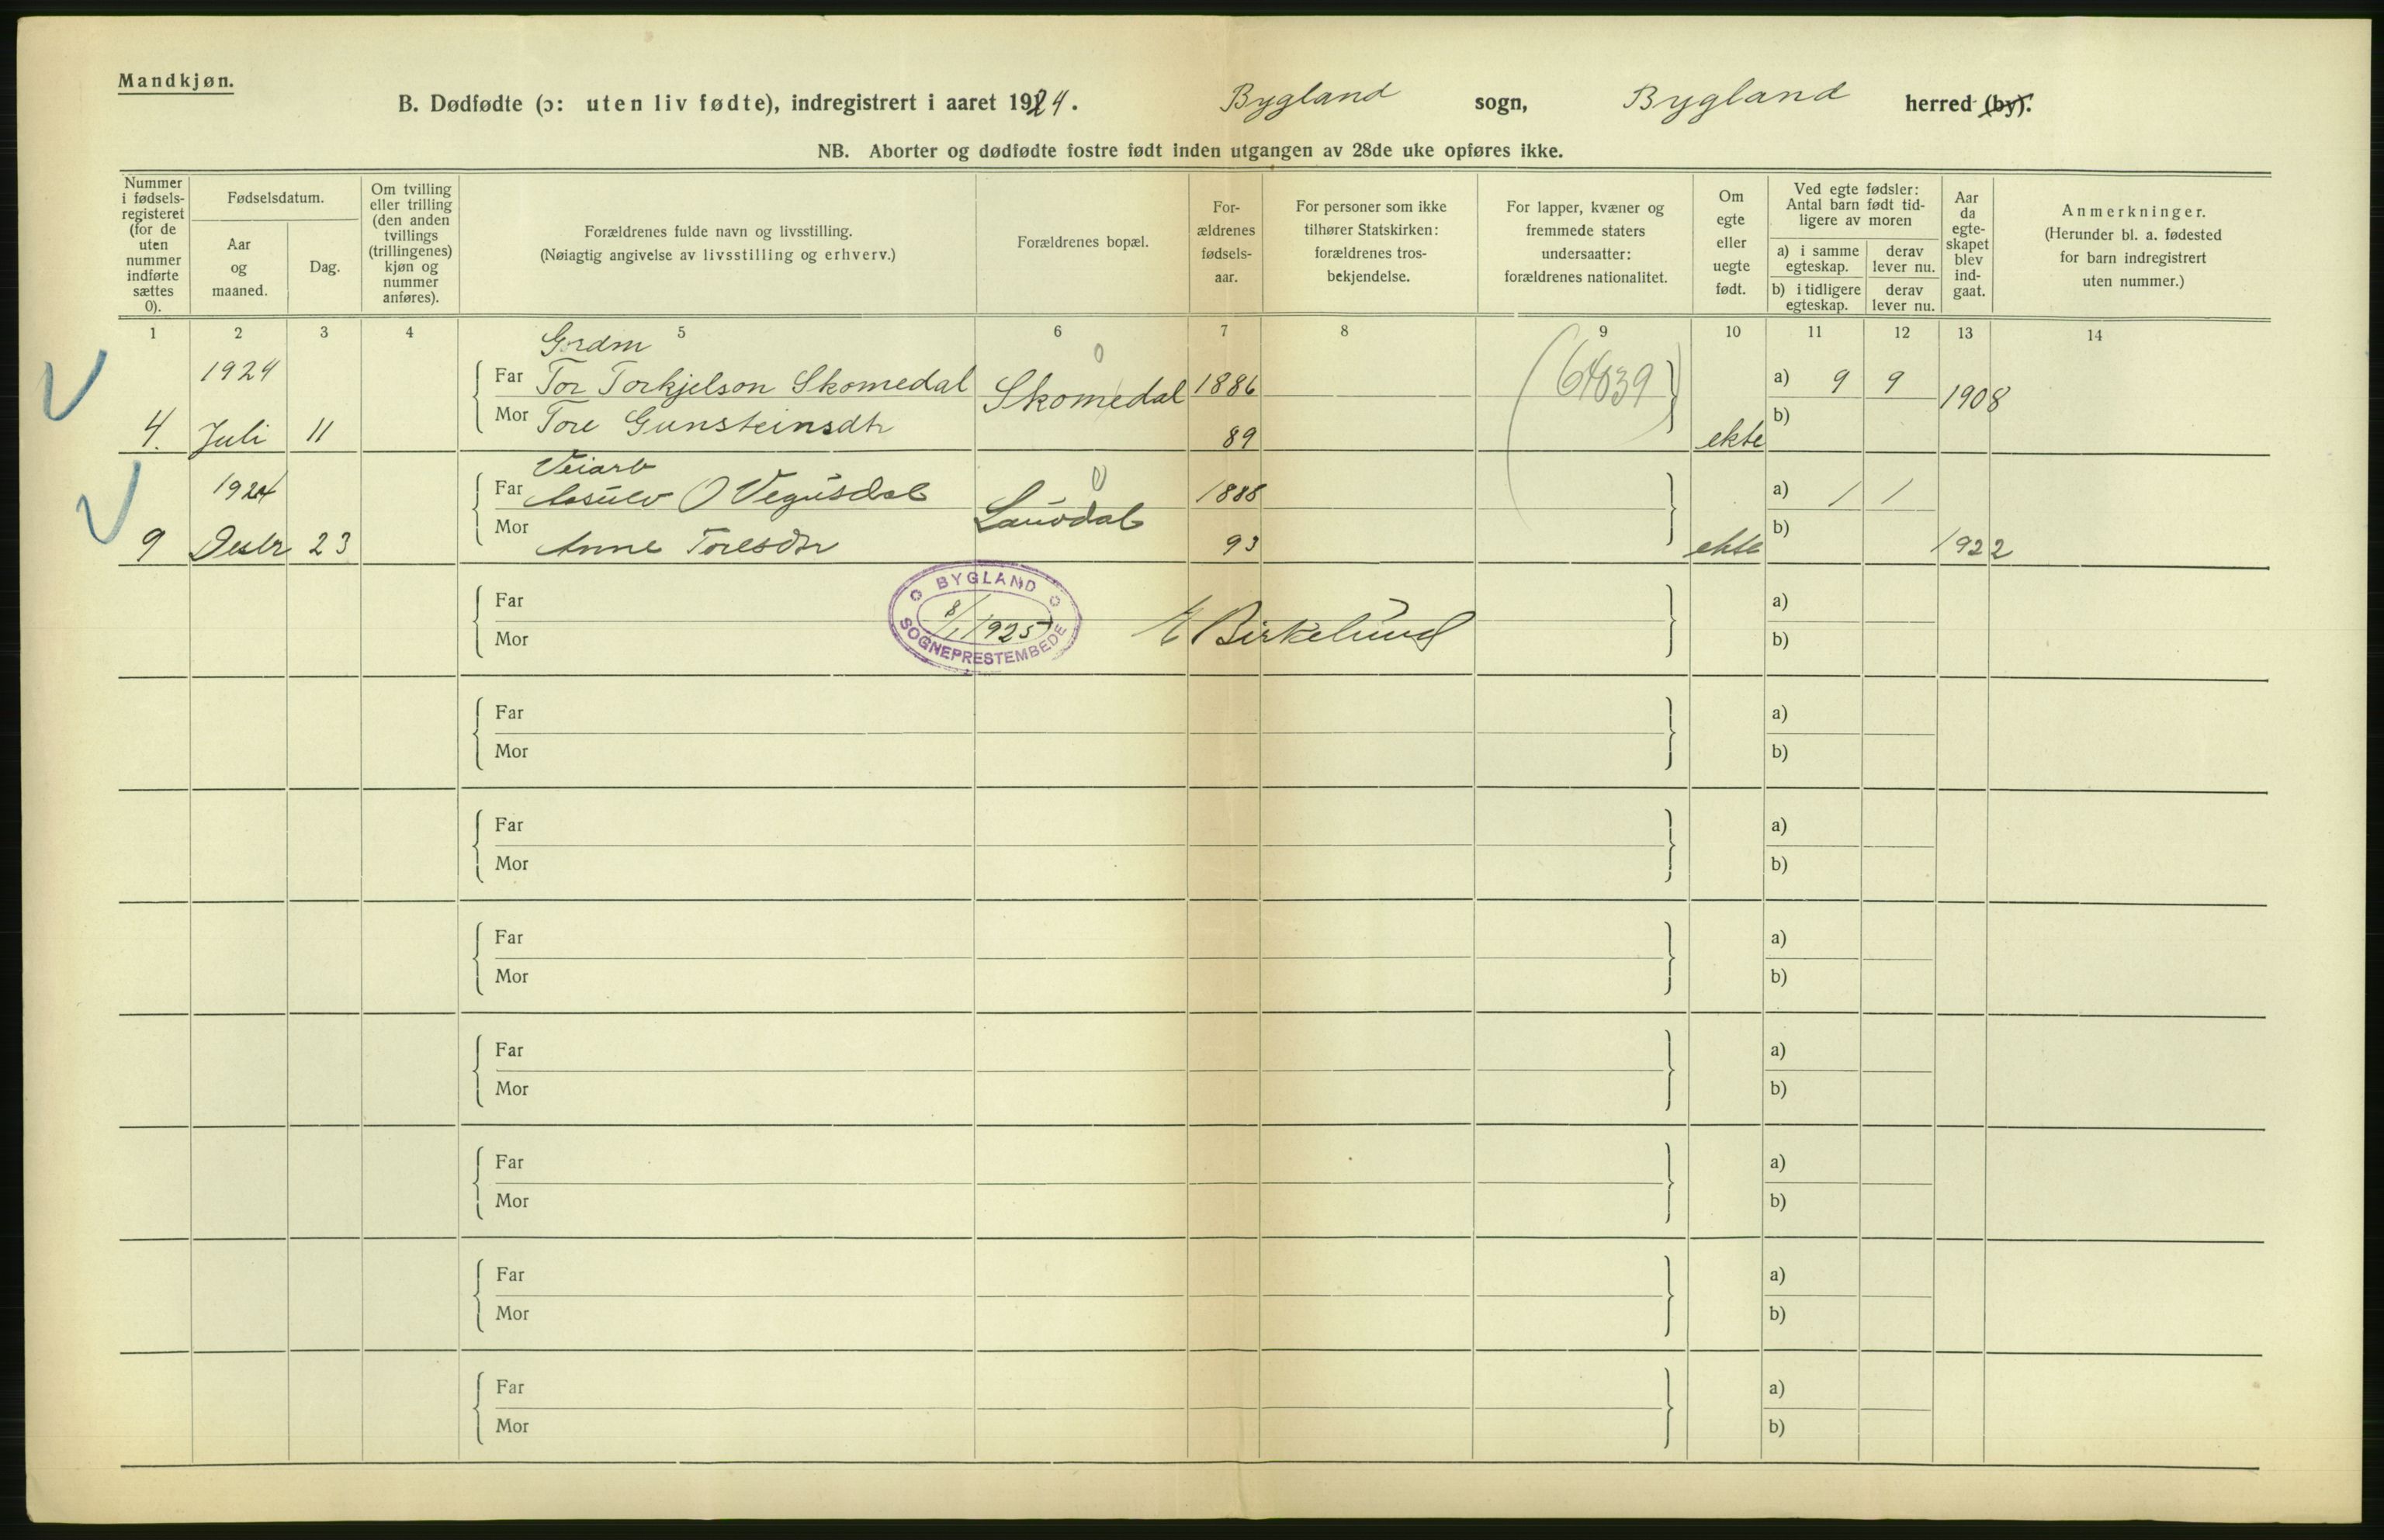 Mandkjøn.
B. Dødfødte (ɔ: uten liv fødte), indregistrert i aaret 1924. Bygland sogn, Bygland herred (by).
NB. Aborter og dødfødte fostre født inden utgangen av 28de uke opføres ikke.
Nummer i fødsels-registeret (for de uten nummer indførte sættes 0).
Fødselsdatum.
Aar og maaned.
Dag.
Om tvilling eller trilling (den anden tvillings (trillingenes) kjøn og nummer anføres).
Forældrenes fulde navn og livsstilling.
(Nøiagtig angivelse av livsstilling og erhverv.)
Forældrenes bopæl.
For-ældrenes fødsels-aar.
For personer som ikke tilhører Statskirken: forældrenes tros-bekjendelse.
For lapper, kvæner og fremmede staters undersaatter: forældrenes nationalitet.
Om egte eller uegte født.
Ved egte fødsler: Antal barn født tid-ligere av moren
a) i samme egteskap.
derav lever nu.
b) i tidligere egteskap.
derav lever nu.
Aar da egte-skapet blev ind-gaat.
Anmerkninger.
(Herunder bl. a. fødested for barn indregistrert uten nummer.)
1 2 3 4 5 6 7 8 9 10 11 12 13 14
Grdm 0
1924 Far Tor Torkjelson Skomedal Skomedal 1886 a) 9 9 1908
4. Juli 11 Mor Tore Gunsteinsdtr 89 ekte b)
Veiarb 0
1924 Far Aasulv O Vegusdal Lauvdal 1888 a) 1 1
9 Desbr 23 Mor Anne Toresdtr 93 ekte b) 1922
Far a)
Mor b)
BYGLAND
8/1 1925
SOGNEPRESTEMBEDE
Birkelund
Far a)
Mor b)
Far a)
Mor b)
Far a)
Mor b)
Far a)
Mor b)
Far a)
Mor b)
Far a)
Mor b)
Far a)
Mor b)